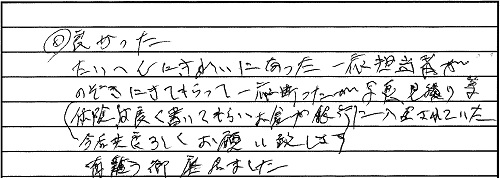 ◎良かった
たいへんにきれいになった 一応担当者が
のぞきにきてもらって一応断ったが 写真 見積り等
保険 度く書いてもらいお金が銀行に入金されていた
今后共宜ろしくお願い致します
有難う御座居ました